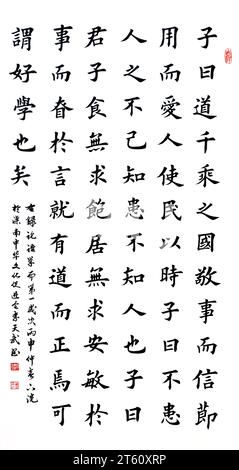 子曰道千乘之國敬事而信節
用而愛人使民以時子曰不患
人之不己知患不知人也子曰
君子食無求飽居無求安敏於
事而眘於言就有道而正焉可
謂好學也矣
右録論語學而第一歲次丙申仲春
中华文化促進会李天武书
alamy
Image ID: 2T60XRP
www.alamy.com